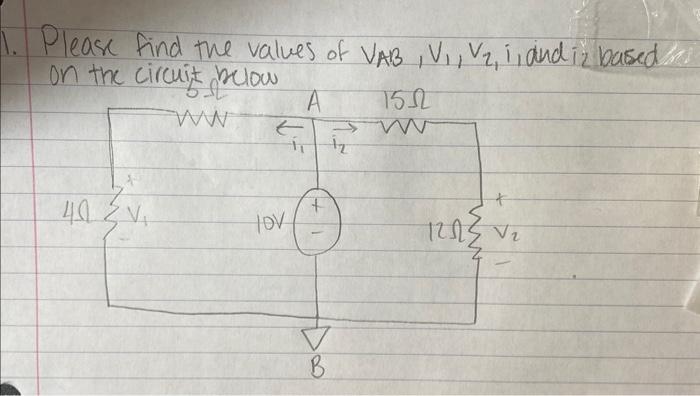 1. Please find the values of VAB, V1, V2, i1 and i2 based
on the circuit below
5Ω
A
15Ω
i1
i2
+
4Ω
V1
-
10V
+
-
+
12Ω
V2
-
B